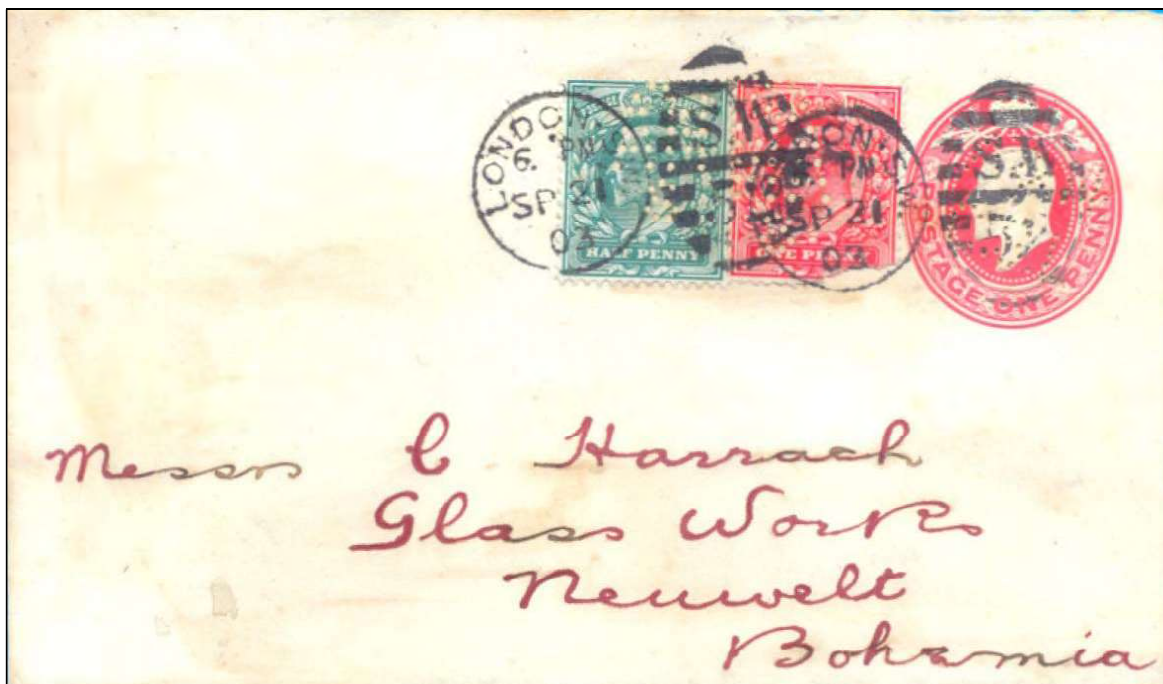 LONDON
6. PM
SP 21
03
S.W
HALF PENNY
ONE PENNY
SP 21
03
S.W
POSTAGE ONE PENNY
Messrs C Harrach
Glass Works
Neuwelt
Bohemia